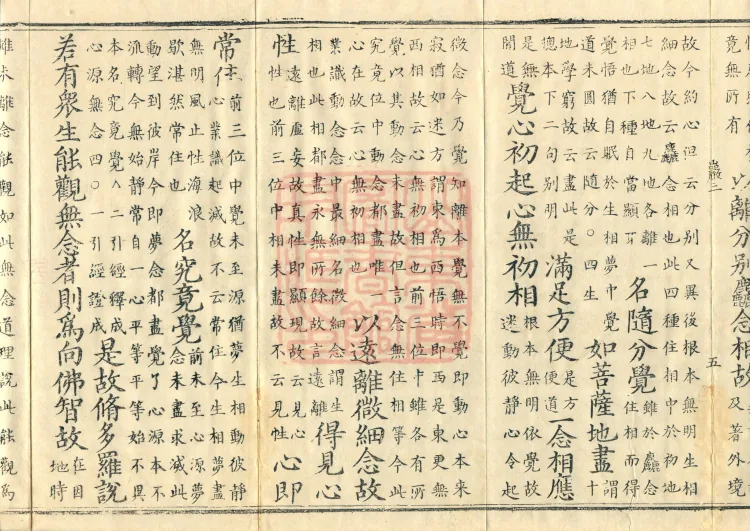 竟無所有
以離分別麤念相故
及著外境
巖三
五
故今約心但云分別又異後根本無明生相
細念故云麤念相也此四種住相中於初地
七地八地九地各離一
相也下種自當顯了
名隨分覺
雖於麤念
住相而得
覺悟猶自眠於生相夢中覺
道未圓故云隨分○四生
如菩薩地盡
謂
十
地學窮故云盡此是
總本下二句別明
滿足方便
是方
便道
一念相應
是無
間道
覺心初起心無初相
根本無明依覺故
迷動彼靜心令起
微念今乃覺知離本覺無不覺即動心本來
寂猶如迷方謂東為西悟時即西是東更無
西相故云心無初相也前三位中雖各有所
覺以其動念未盡故但言念無住相等今此
究竟位中動念都盡唯一
心在故云心無初相也
以遠離微細念故
業識動念念中最細名微細念謂生
相也此相都盡永無所餘故言遠離
得見心
性
遠離虛妄故真性即顯現故云見心
性也前三位中相未盡故不云見性
心即
常住
前三位中覺未至源猶夢生相動彼靜
心業識起滅故不云常住今生相夢盡
無明風止性海浪
歇湛然常住也
名究竟覺
前未至心源夢
念未盡求滅此
動望到彼岸今即夢念都盡覺了心源本不
流轉今無始靜常自一心平等平等始不異
本名究竟覺^二引經釋成
心源無念四○一引經證成
是故脩多羅說
若有衆生能觀無念者則爲向佛智故
在因
地時
雖未離念能觀如此無念道理說此能觀爲